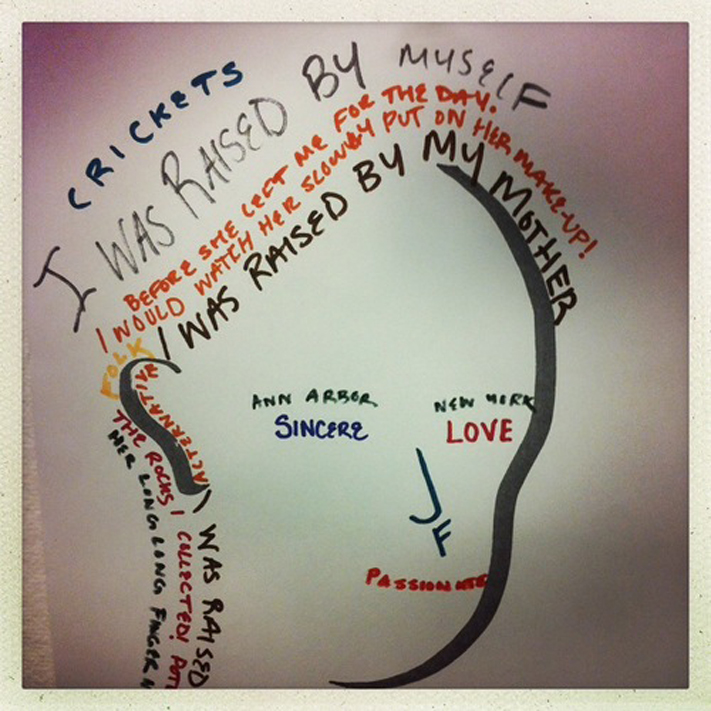 CRICKETS
I WAS RAISED BY MYSELF
BEFORE SHE LEFT ME FOR THE DAY.
I WOULD WATCH HER SLOWLY PUT ON HER MAKE-UP!
I WAS RAISED BY MY MOTHER
FOLK
ALTERNATIR
ANN ARBOR
SINCERE
NEW YORK
LOVE
JF
PASSION
I WAS RAISED
THE ROCKS I COLLECTED! POT
HER LONG LONG FINGER N